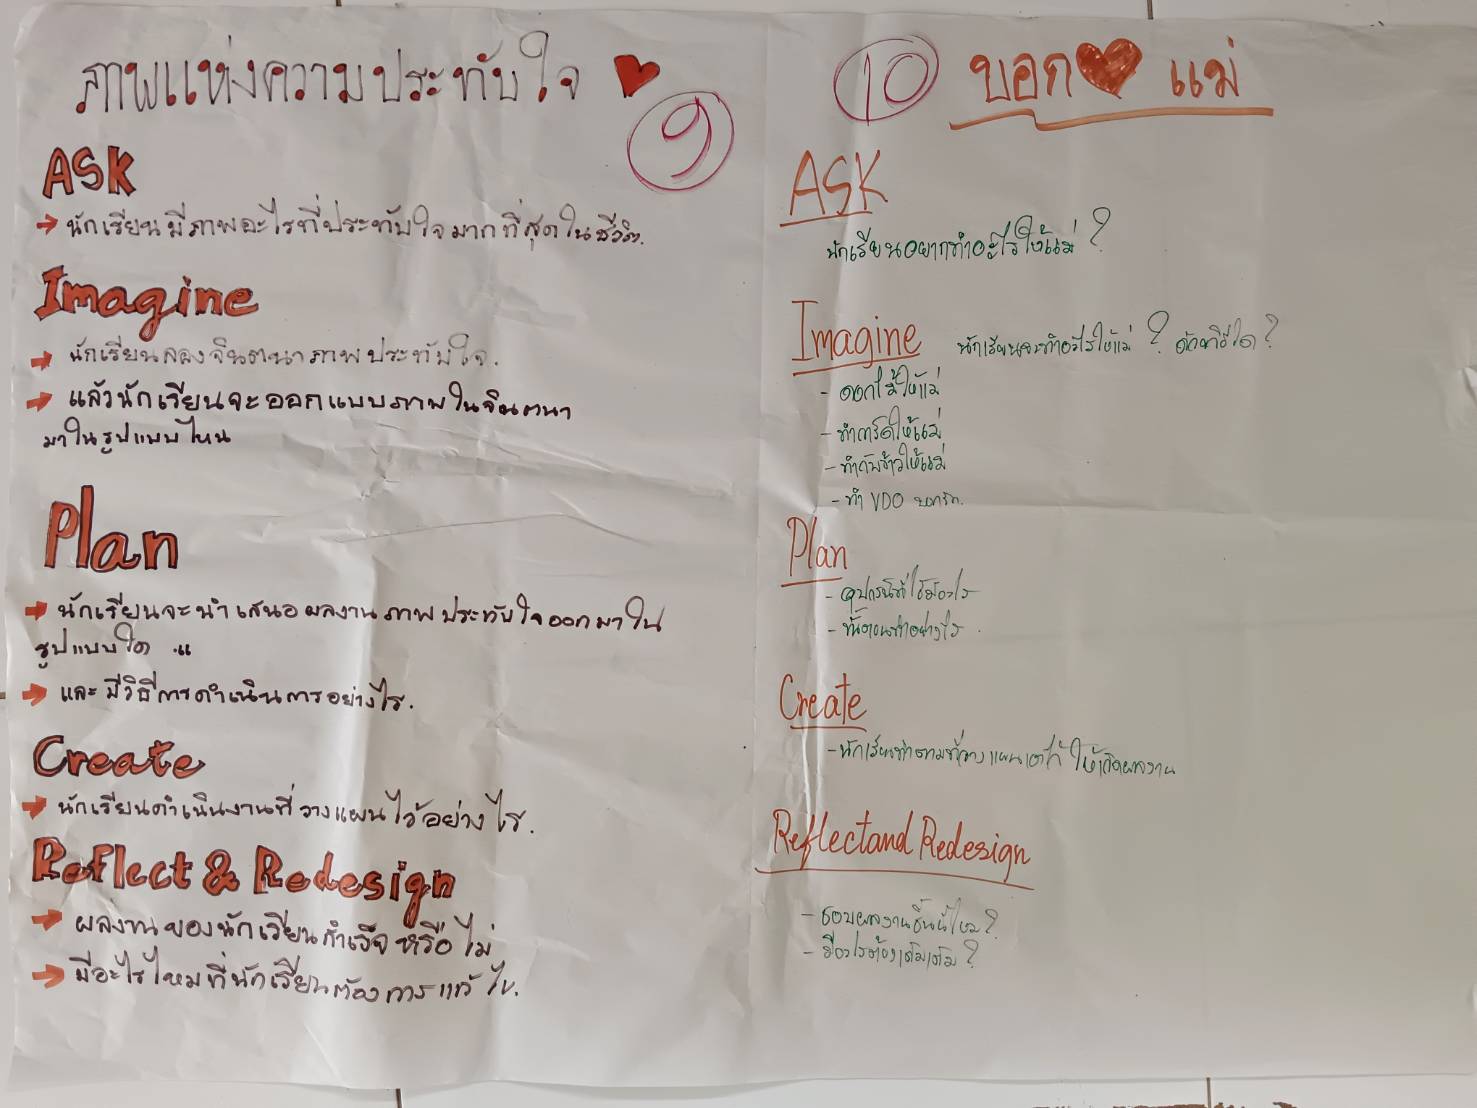 ภาพแห่งความประทับใจ
9
ASK
นักเรียนมีภาพอะไรที่ประทับใจมากที่สุดในชีวิต.
Imagine
นักเรียนลองจินตนาภาพประทับใจ.
แล้วนักเรียนจะออกแบบภาพในจินตนา
มาในรูปแบบไหน
Plan
นักเรียนจะนำเสนอผลงานภาพประทับใจออกมาใน
รูปแบบใด
และมีวิธีการดำเนินการอย่างไร.
Create
นักเรียนดำเนินงานที่วางแผนไว้อย่างไร.
Reflect & Redesign
ผลงานของนักเรียนสำเร็จหรือไม่
มีอะไรไหมที่นักเรียนต้องการแก้ไข.
10
บอก แม่
ASK
นักเรียนอยากทำอะไรให้แม่?
Imagine นักเรียนจะทำอะไรให้แม่? ด้วยวิธีใด?
- ดอกไม้ให้แม่
- ทำการ์ดให้แม่
- ทำกับข้าวให้แม่
- ทำ VDO บอกรัก.
Plan
- อุปกรณ์ที่ใช้มีอะไร
- ขั้นตอนทำอย่างไร
Create
- นักเรียนทำตามที่วางแผนเอาไว้ ให้เกิดผลงาน
Reflect and Redesign
- ชอบผลงานชิ้นนี้ไหม?
- มีอะไรต้องเติมเต็ม?